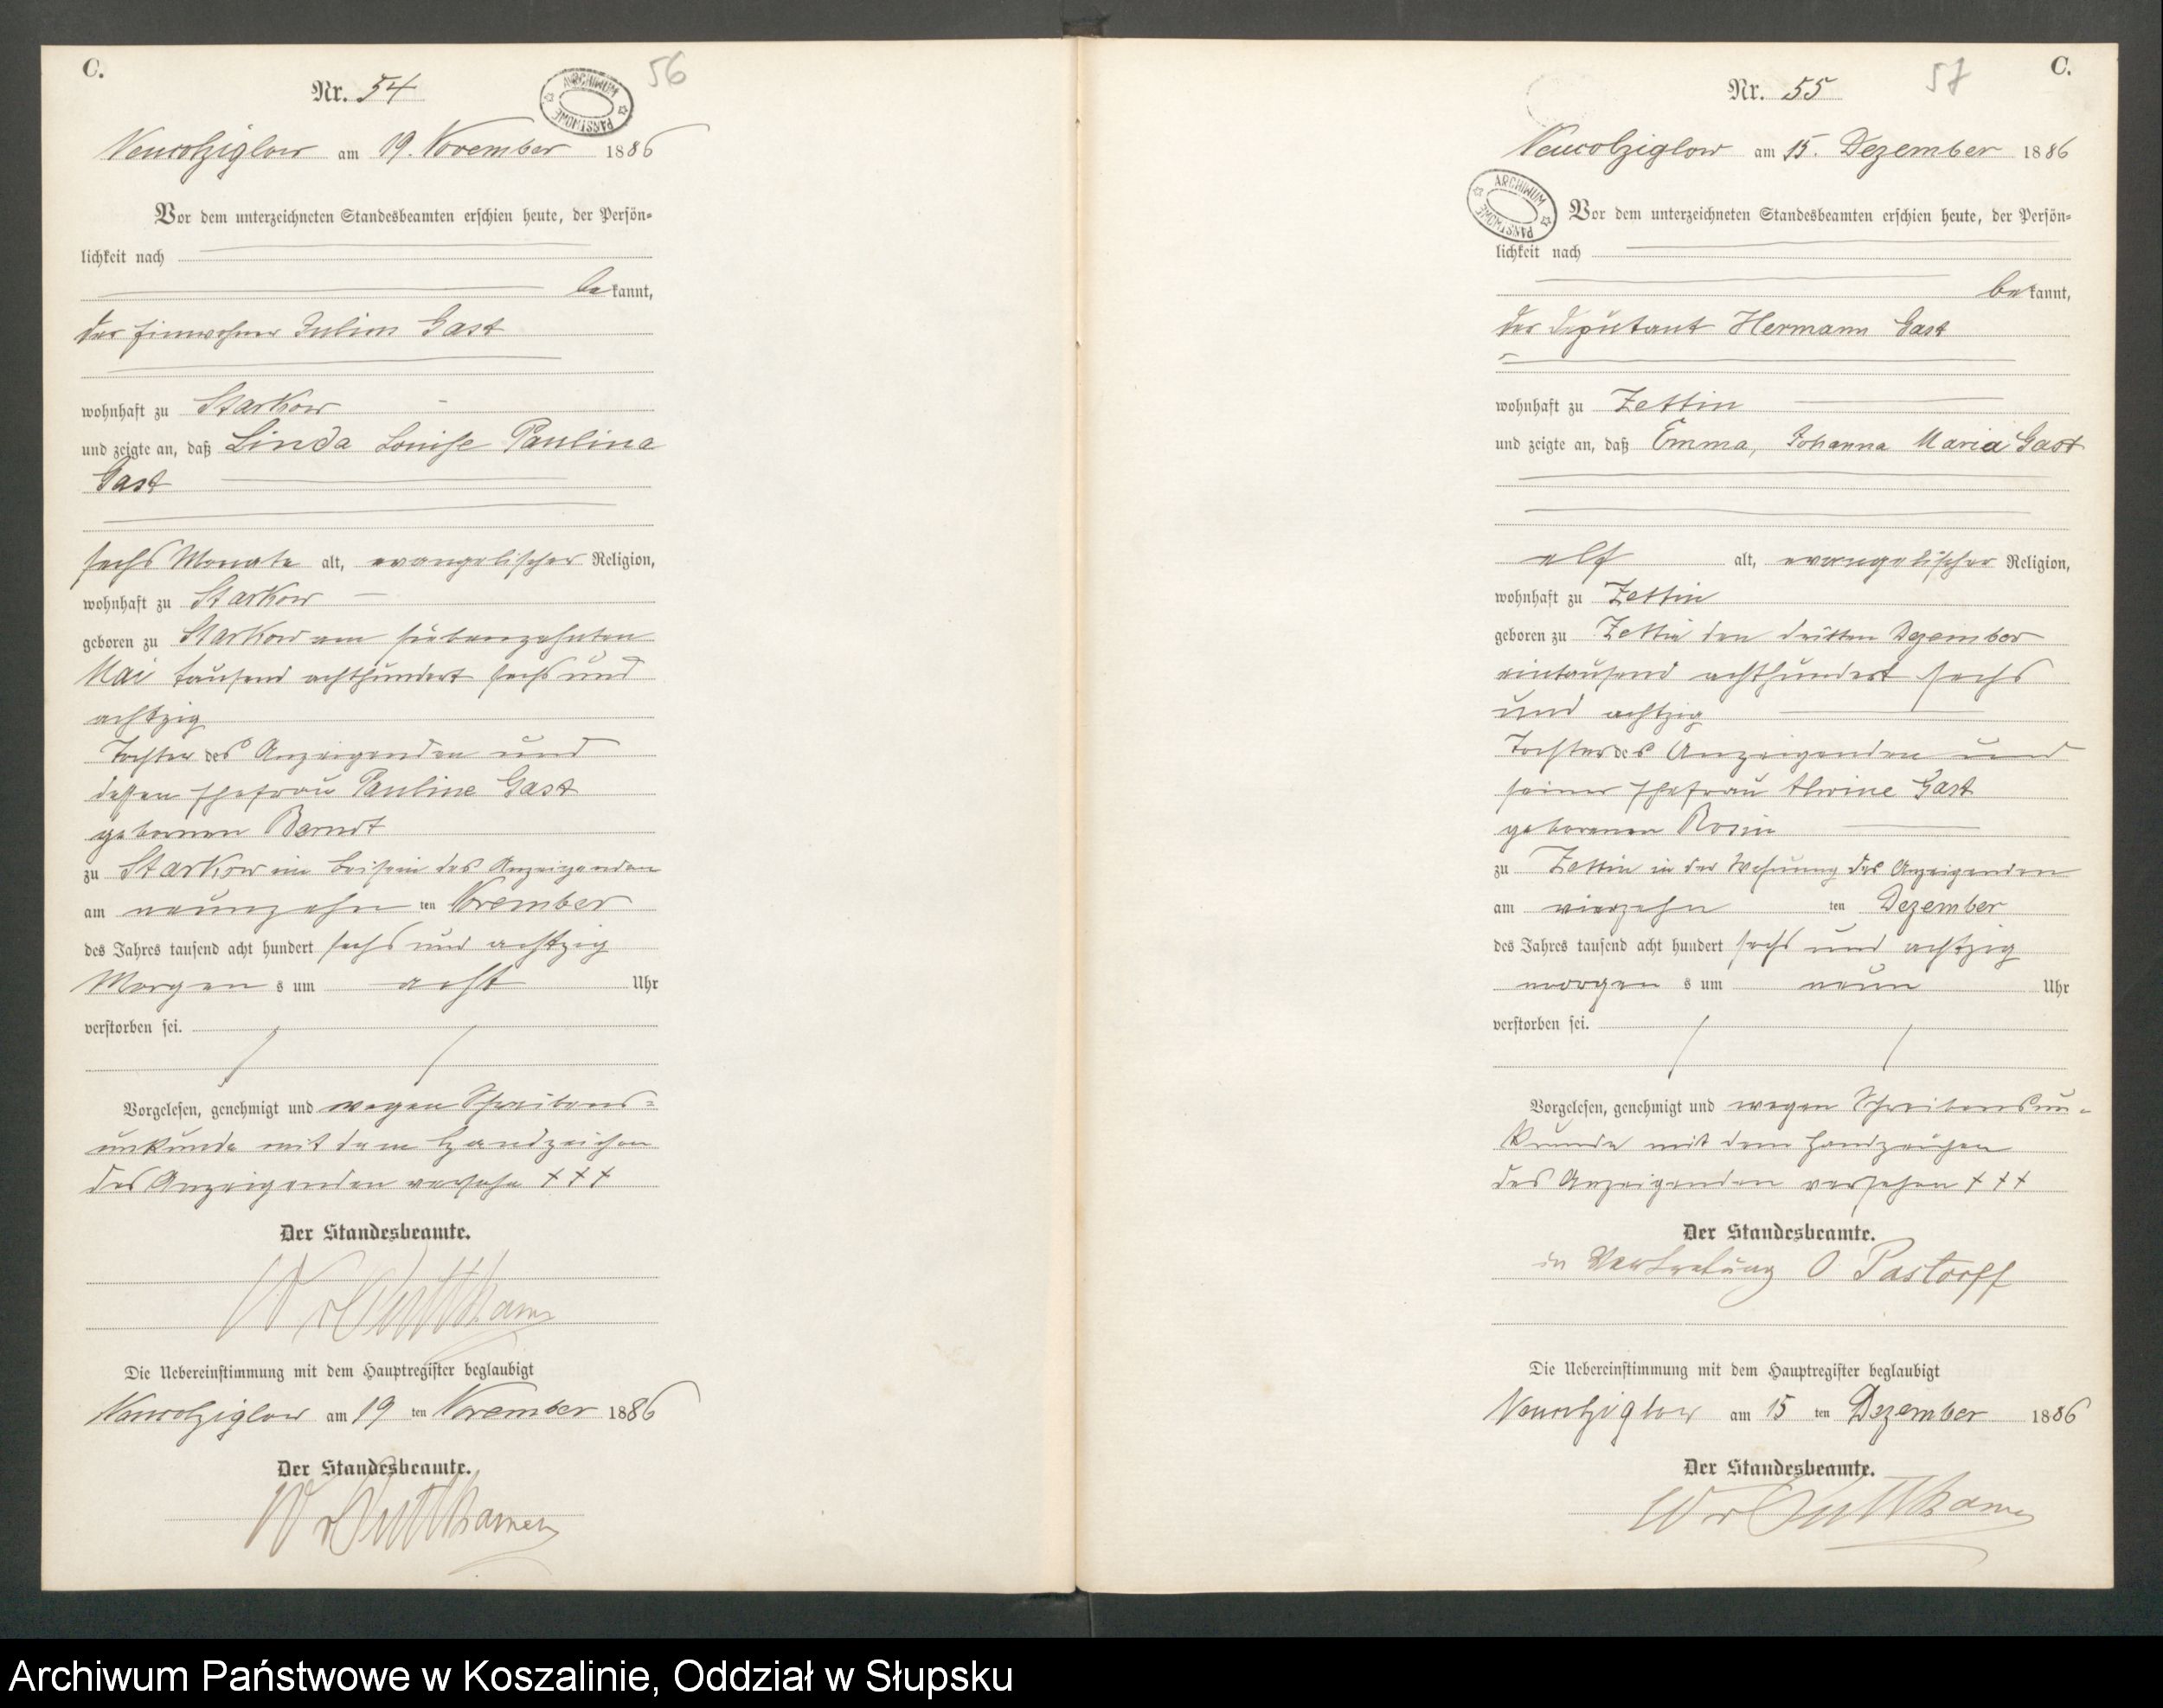 C.
Nr. 54
ARCHIWUM PAŃSTWOWE
56
Neucolziglow am 19. November 1886
Vor dem unterzeichneten Standesbeamten erschien heute, der Persön-
lichkeit nach
bekannt,
der Einwohner Julius Gast
wohnhaft zu Starkow
und zeigte an, daß Linda Louise Paulina
Gast
sechs Monate alt, evangelischer Religion,
wohnhaft zu Starkow
geboren zu Starkow am siebenzehnten
Mai tausend achthundert sechs und
achtzig
Tochter des Anzeigenden und
dessen Ehefrau Pauline Gast
gebornen Berndt
zu Starkow im Beisein des Anzeigenden
am neunzehn ten November
des Jahres tausend acht hundert sechs und achtzig
Morgen s um acht Uhr
verstorben sei.
Vorgelesen, genehmigt und wegen Schreibens-
unkunde mit dem Handzeichen
des Anzeigenden versehn † † †
Der Standesbeamte.
W v Puttkamer
Die Uebereinstimmung mit dem Hauptregister beglaubigt
Neucolziglow am 19 ten November 1886
Der Standesbeamte.
W v Puttkamer
C.
Nr. 55
57
Neucolziglow am 15. Dezember 1886
ARCHIWUM PAŃSTWOWE
Vor dem unterzeichneten Standesbeamten erschien heute, der Persön-
lichkeit nach
bekannt,
der Deputant Hermann Gast
wohnhaft zu Zettin
und zeigte an, daß Emma, Johanna Maria Gast
elf alt, evangelischer Religion,
wohnhaft zu Zettin
geboren zu Zettin den dritten Dezember
eintausend achthundert sechs
und achtzig
Tochter des Anzeigenden und
seiner Ehefrau Alwine Gast
geborenen Rosin
zu Zettin in der Wohnung des Anzeigenden
am vierzehn ten Dezember
des Jahres tausend acht hundert sechs und achtzig
morgen s um neun Uhr
verstorben sei.
Vorgelesen, genehmigt und wegen Schreibensun-
kunde mit dem Handzeichen
des Anzeigenden versehen † † †
Der Standesbeamte.
in Vertretung O. Pastorff
Die Uebereinstimmung mit dem Hauptregister beglaubigt
Neucolziglow am 15 ten Dezember 1886
Der Standesbeamte.
W v Puttkamer
Archiwum Państwowe w Koszalinie, Oddział w Słupsku